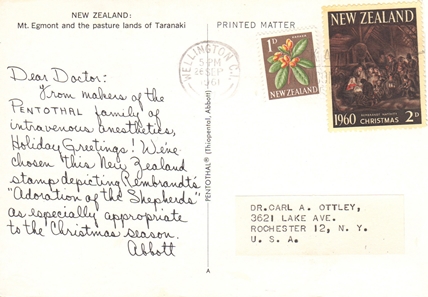 NEW ZEALAND:
Mt. Egmont and the pasture lands of Taranaki
PRINTED MATTER
WELLINGTON C1
5-PM
SEP
1961
1D
NEW ZEALAND
NEW ZEALAND
1960
CHRISTMAS
2D
Dear Doctor:
From makers of the
PENTOTHAL family of
intravenous anesthetics,
Holiday Greetings! We've
chosen this New Zealand
stamp depicting Rembrandt's
"Adoration of the Shepherds"
as especially appropriate
to the Christmas season.
Abbott
PENTOTHAL® (Thiopental, Abbott)
A
DR.CARL A. OTTLEY,
3621 LAKE AVE.
ROCHESTER 12, N. Y.
U. S. A.